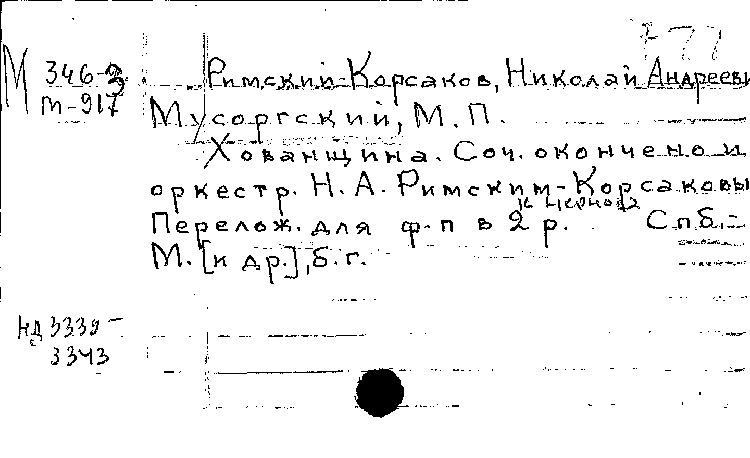 М 346-3
т-917
Римский-Корсаков, Николай Андрееви
Мусоргский, М.П.
Хованщина. Соч. окончено и
оркестр. Н.А. Римским-Корсаковы
Перелож. для ф-п в 2 р. Спб.-
М. [и др.], б.г.
3339-
3343